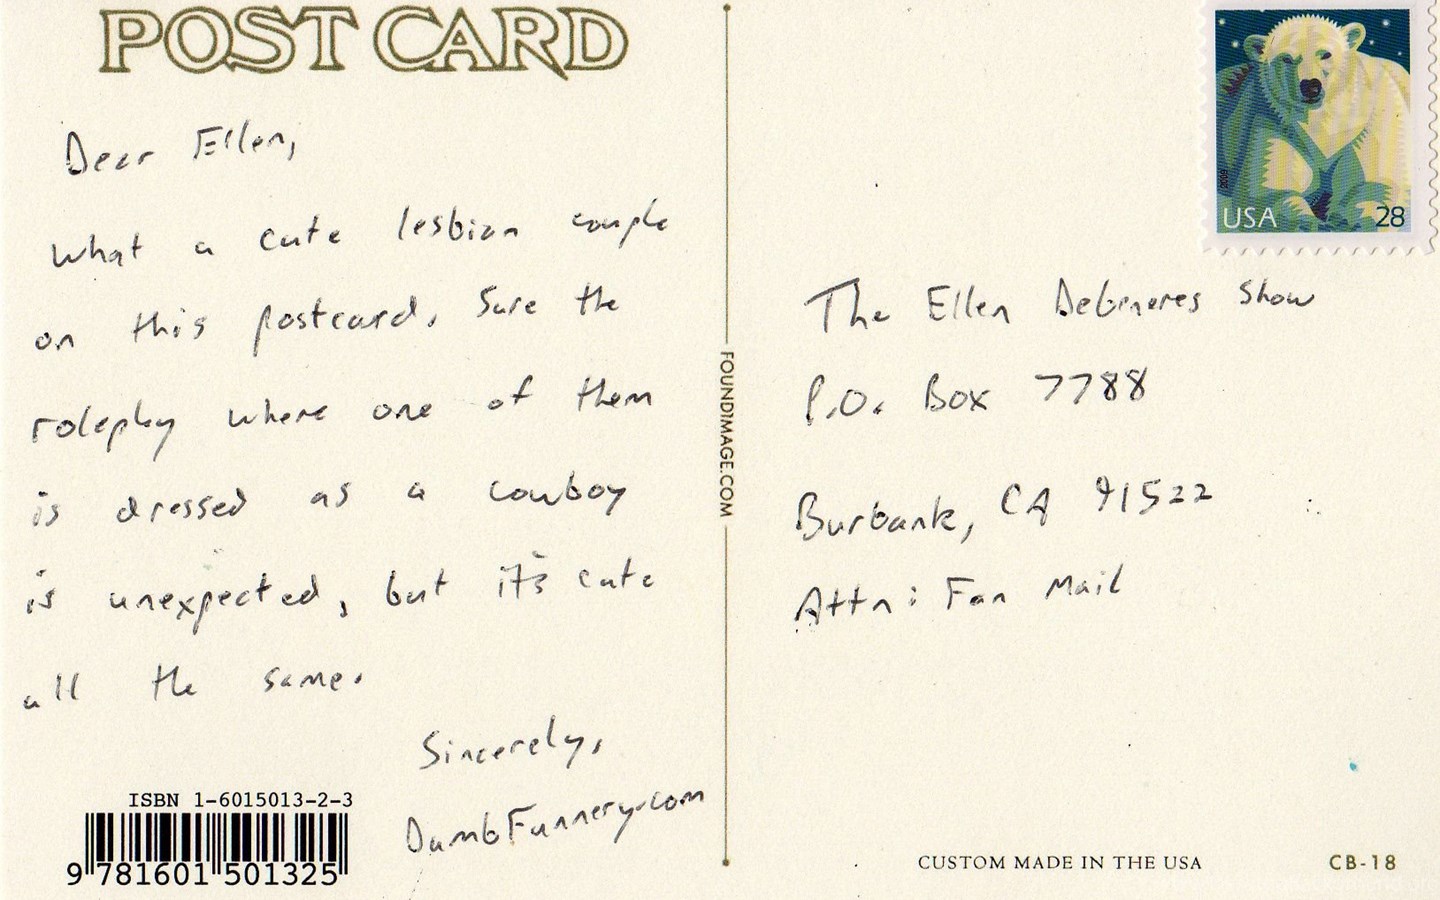 POST CARD
Dear Ellen,
What a cute lesbian couple
on this postcard. Sure the
roleplay where one of them
is dressed as a cowboy
is unexpected, but it's cute
all the same.
Sincerely,
DumbFunnery.com
ISBN 1-6015013-2-3
9 781601 501325
FOUNDIMAGE.COM
2009
USA 28
The Ellen DeGeneres Show
P.O. Box 7788
Burbank, CA 91522
Attn: Fan Mail
CUSTOM MADE IN THE USA
CB-18